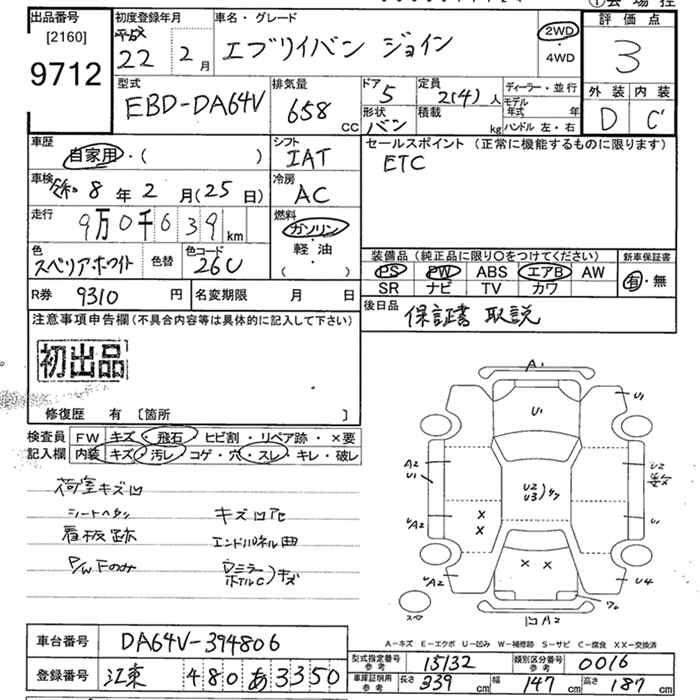 出品番号 [2160] 9712
初度登録年月 平成 22年 2月
車名・グレード エブリイバン ジョイン
2WD ・ 4WD
評価点 3
外装 D 内装 C
型式 EBD-DA64V
排気量 658 CC
ドア 5 形状 バン
定員 2(4)人 積載 kg
ディーラー・並行
モデル年式 年
ハンドル 左・右
車歴 自家用・( )
シフト IAT
セールスポイント (正常に機能するものに限ります)
ETC
車検 令和 8年 2月(25日)
冷房 AC
走行 9万0千639km
燃料 ガソリン 軽油 ( )
色 スペリアホワイト 色替 色コード 26U
装備品 (純正品に限り〇をつけてください)
PS PW ABS エアB AW
SR ナビ TV カワ
新車保証書 有・無
R券 9310円 名変期限 月 日
後日品 保証書 取説
注意事項申告欄 (不具合内容等は具体的に記入して下さい)
初出品
修復歴 有 〔箇所 〕
検査員記入欄
FW キズ・飛石・ヒビ割・リペア跡・×要
内装 キズ・汚レ・コゲ・穴・スレ・キレ・破レ
荷室キズ凹
シートヘタリ キズ凹
看板跡 エンドパネル曲
P/W下のみ Dミラー
キズ
A1
U1
U1
A2
U1
U2
U2
U3
A2
U1
A2
U4
スペア
A2
A－キズ E－エクボ U－凹み W－補修跡 S－サビ C－腐食 XX－交換済
車台番号 DA64V-394806
登録番号 江東 480 あ 3350
型式指定番号 参考 15132 類別区分番号 参考 0016
車庫証明用 参考 長さ 339cm 幅 147cm 高さ 187cm